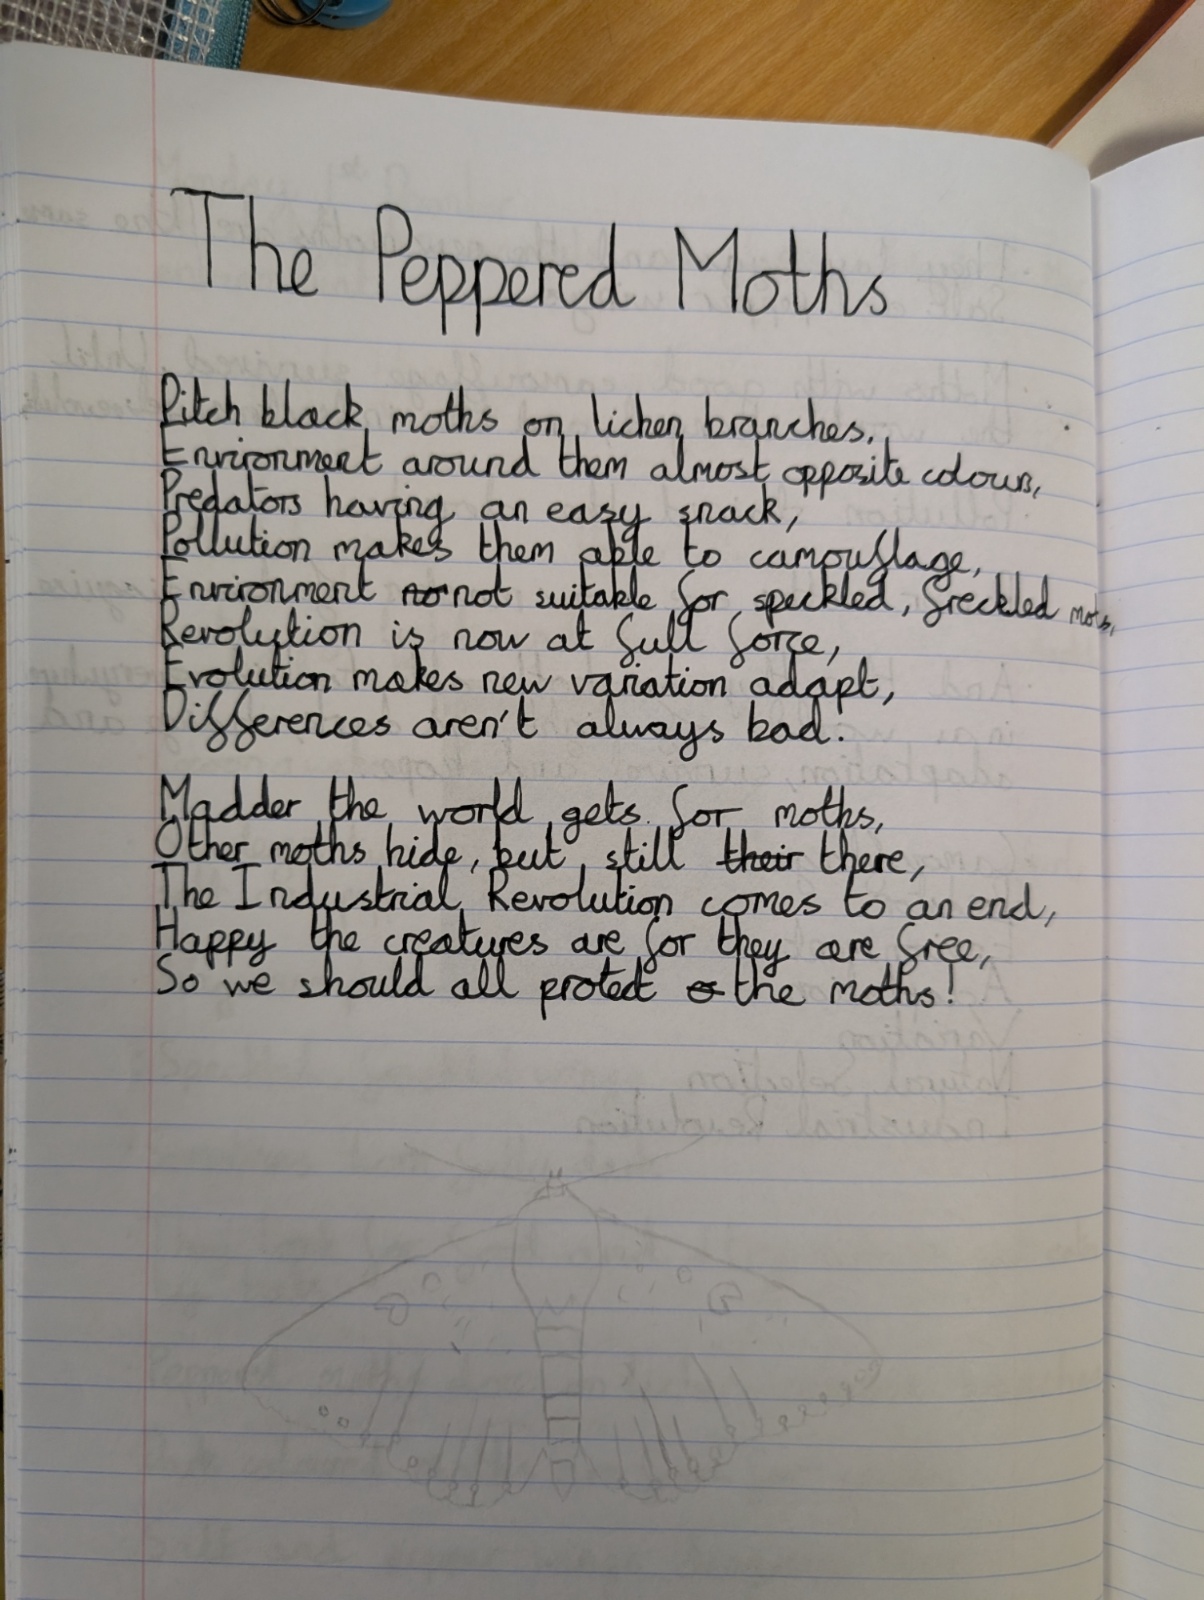 The Peppered Moths
Pitch black moths on lichen branches,
Environment around them almost opposite colours,
Predators having an easy snack,
Pollution makes them able to camouflage,
Environment not suitable for speckled, freckled moths,
Revolution is now at full force,
Evolution makes new variation adapt,
Differences aren't always bad.
Madder the world gets for moths,
Other moths hide, but still their there,
The Industrial Revolution comes to an end,
Happy the creatures are for they are free,
So we should all protect the moths!